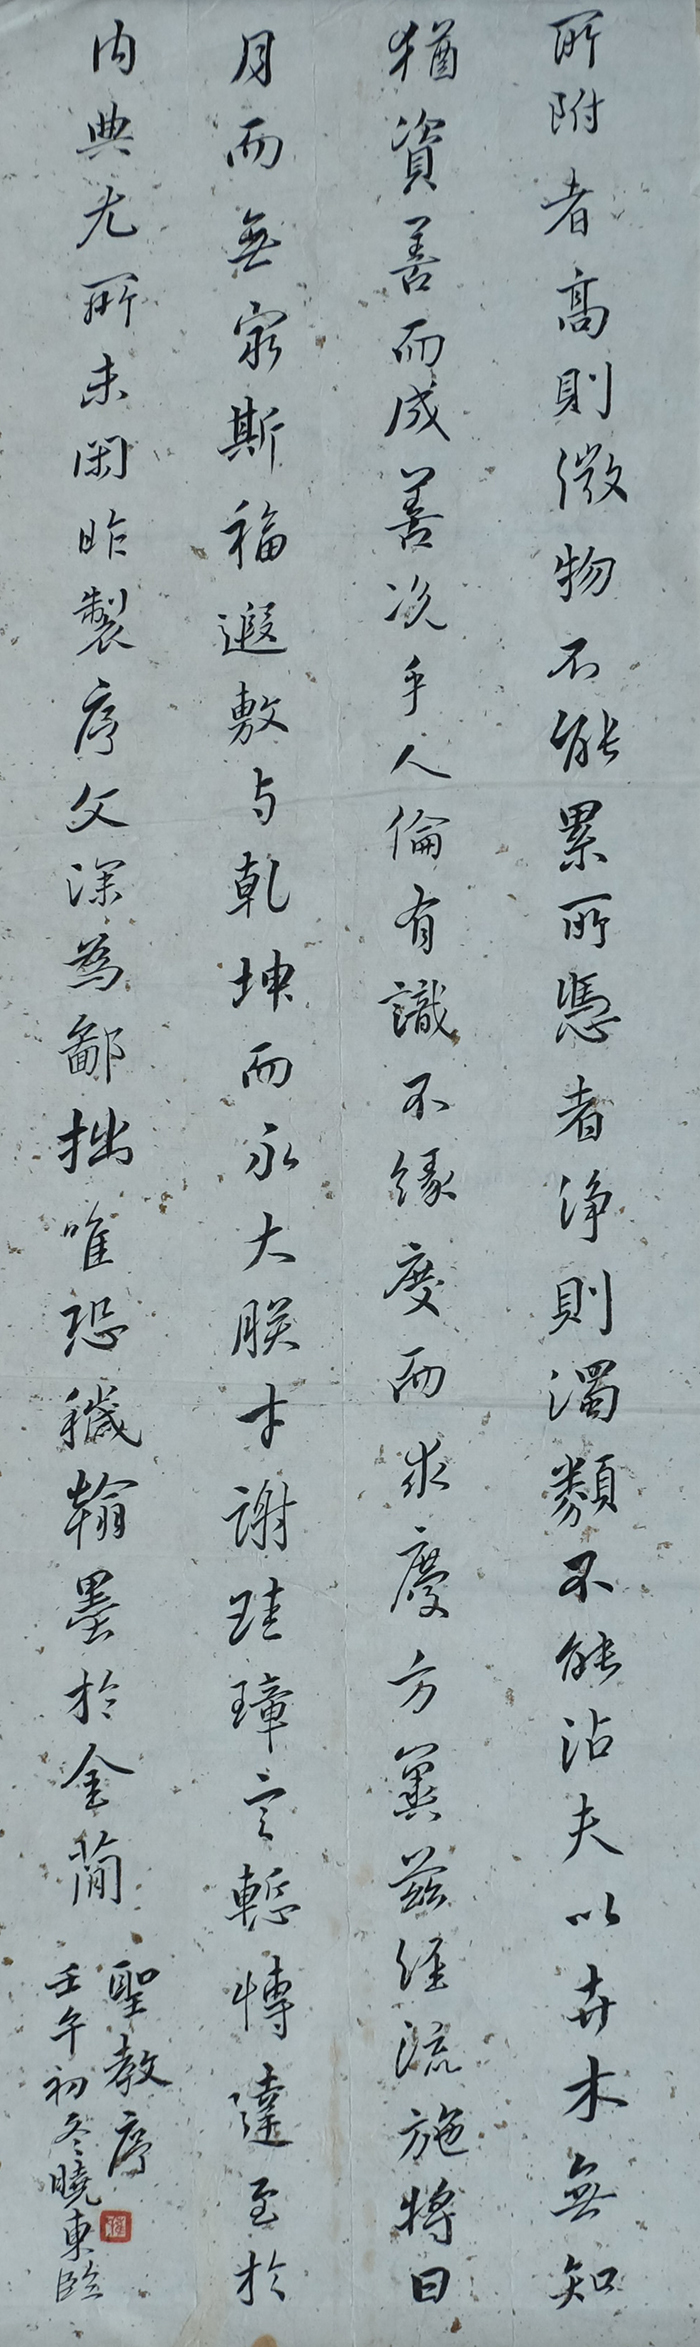 所附者高則微物不能累所憑者淨則濁類不能沾夫以卉木無知
猶資善而成善況乎人倫有識不緣慶而求慶方冀茲經流施將日
月而無窮斯福遐敷与乾坤而永大朕才謝珪璋言慙博達至於
內典尤所未閑昨製序文深為鄙拙唯恐穢翰墨於金簡
聖教序
壬午初冬曉東臨